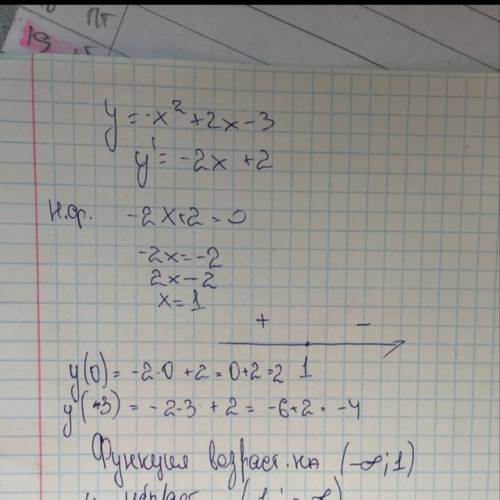 пт
19
y = -x² + 2x - 3
y' = -2x + 2
н.ф. -2x+2=0
-2x=-2
2x-2
x=1
+ -
y(0) = -2·0 + 2 = 0+2=2 1
y(+3) = -2·3 + 2 = -6+2 = -4
Функция возраст. на (-∞; 1)